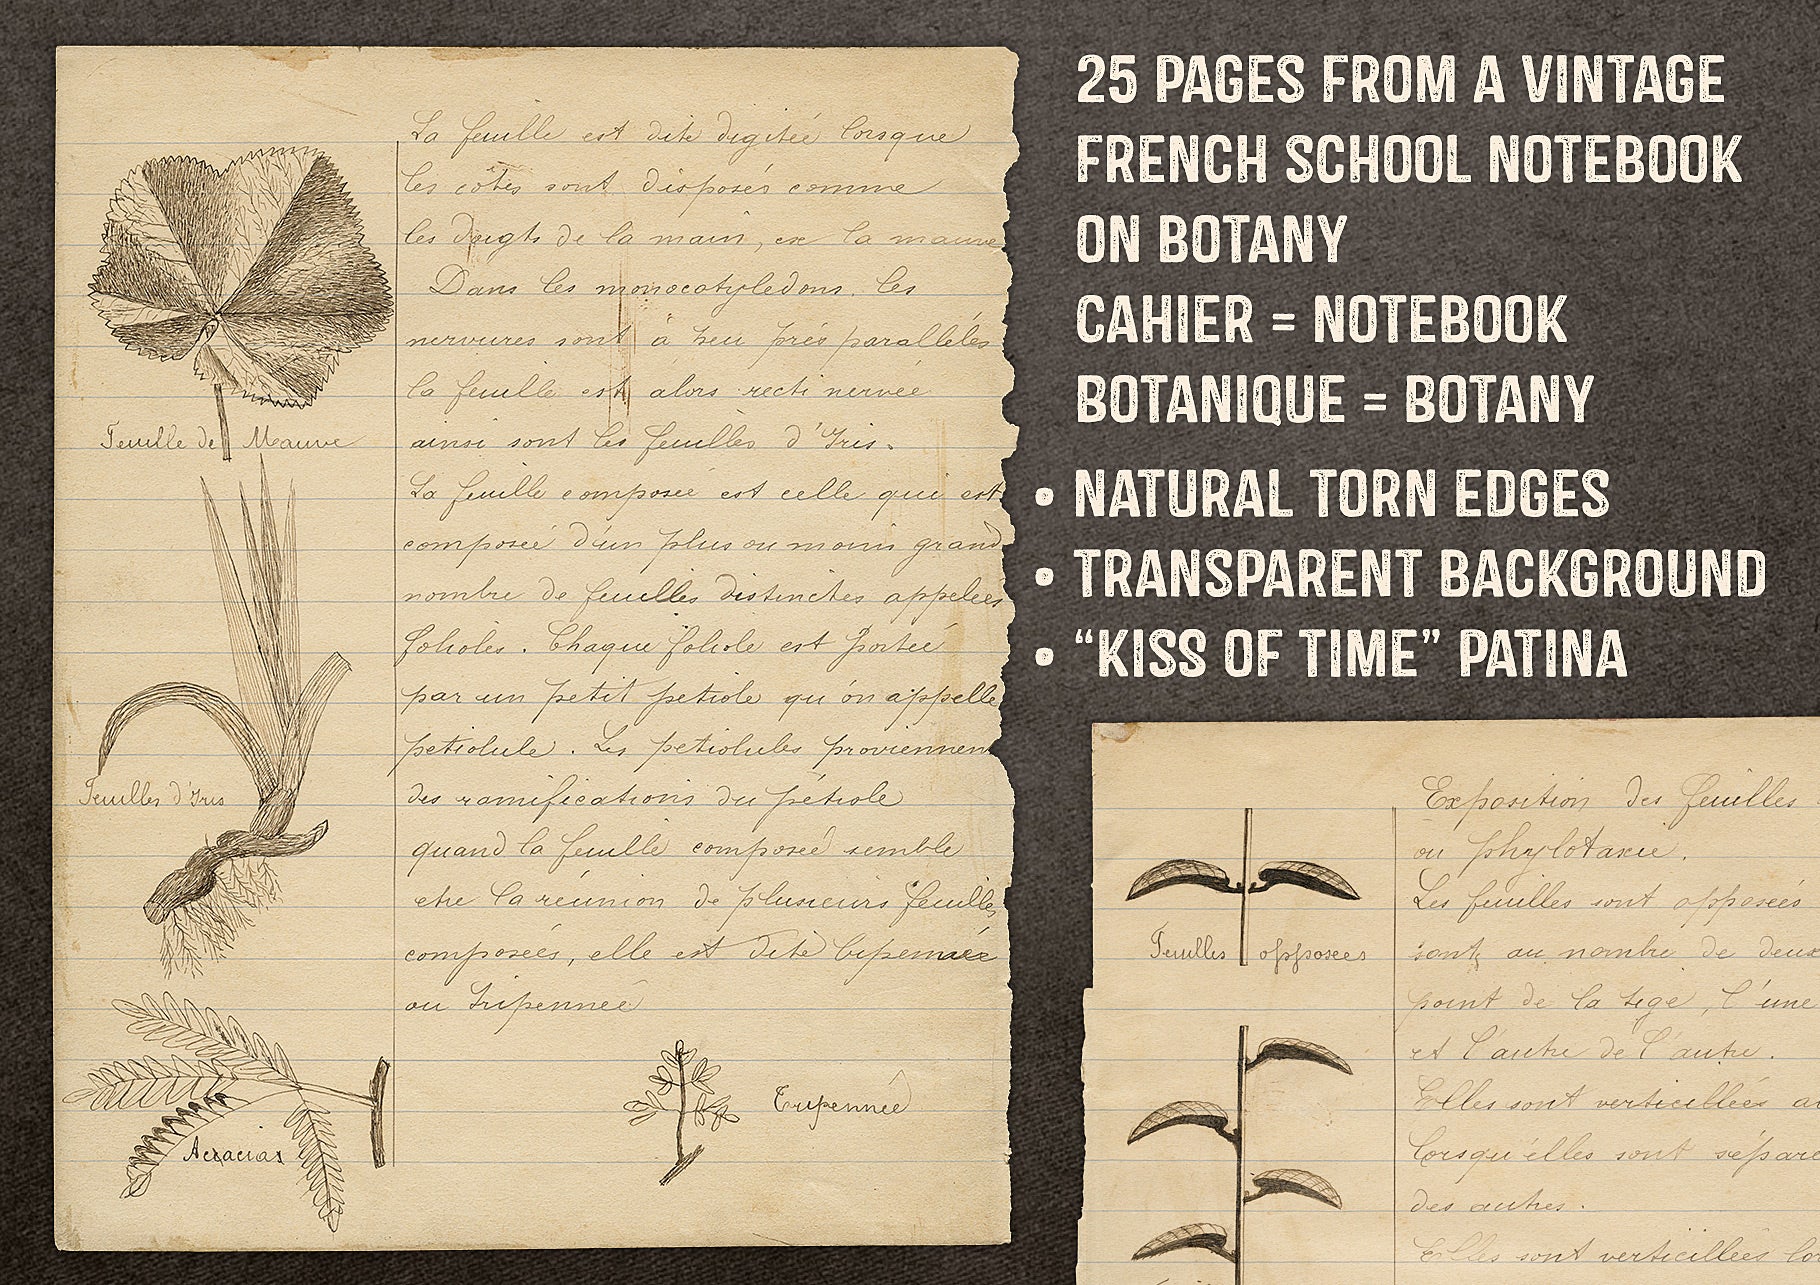 25 PAGES FROM A VINTAGE
FRENCH SCHOOL NOTEBOOK
ON BOTANY
CAHIER = NOTEBOOK
BOTANIQUE = BOTANY
• NATURAL TORN EDGES
• TRANSPARENT BACKGROUND
• “KISS OF TIME” PATINA
La feuille est dite digitée lorsque
les côtes sont disposés comme
les doigts de la main, ex la mauve
Dans les monocotyledons, les
nervures sont à peu prés paralléles
la feuille est alors recti nervée
ainsi sont les feuilles d'Iris.
La feuille composée est celle qui est
composée d'un plus ou moins grand
nombre de feuilles distinctes appelees
folioles. Chaque foliole est portée
par un petit petiole qu'on appelle
petiolule. Les petiolules proviennent
des ramifications du pétiole
quand la feuille composée semble
etre la réunion de plusieurs feuilles
composées, elle est dite bipennée
ou tripenneé
Feuille de Mauve
Feuilles d'Iris
Accacias
Tripenneé
Exposition des feuilles
ou phylotaxie.
Les feuilles sont opposées
sont au nombre de deux
point de la tige, l'une
et l'autre de l'autre.
Elles sont verticillées au
lorsqu'elles sont sépare
des autres.
Elles sont verticillées lo
Feuilles opposees